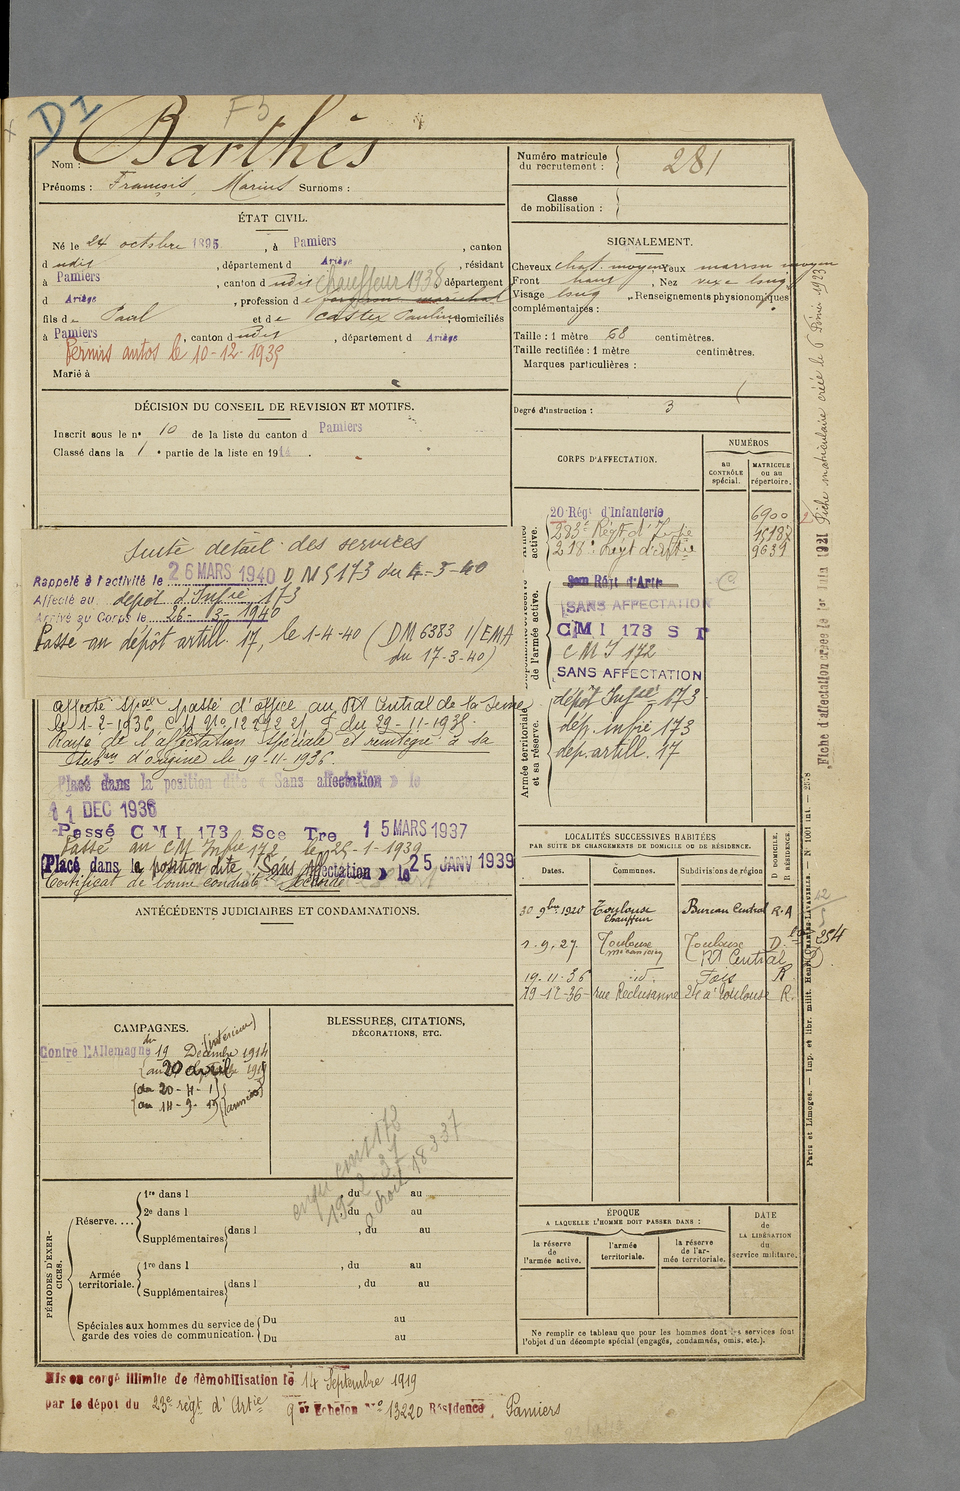 D1
F5
Nom : Barthès
Prénoms : François, Marius Surnoms :
ÉTAT CIVIL.
Né le 24 octobre 1895, à Pamiers, canton
d udit, département d Ariège, résidant
à Pamiers, canton d udit chauffeur 1938 département
d Ariège, profession d maréchal
fils de Paul et de Castex Pauline domiciliés
à Pamiers, canton d udit, département d Ariège
Permis autos le 10-12-1935
Marié à
DÉCISION DU CONSEIL DE REVISION ET MOTIFS.
Inscrit sous le n° 10 de la liste du canton d Pamiers
Classé dans la 1e partie de la liste en 1914.
Suite détail des services
Rappelé à l'activité le 26 MARS 1940 D M 5173 du 4-3-40
Affecté au dépôt d'Infie 173
Arrivé au Corps le 26-03-1940
Passé au dépôt artill. 17, le 1-4-40 (DM 6383 1/EMA
du 17-3-40)
Affecté Spal passé d'office au RA Central de la Seine
le 1-2-1936, du 29-11-1935.
Rayé de l'affectation spéciale et réintégré à sa
Subon d'origine le 19-11-1936.
Placé dans la position dite « Sans affectation » le
11 DEC 1936
Passé C M I 173 Sce Tre 15 MARS 1937
Passé au CM Infie 172 le 25-1-1939
Placé dans la position dite « Sans affectation » le 25 JANV 1939
Certificat de bonne conduite accordé
ANTÉCÉDENTS JUDICIAIRES ET CONDAMNATIONS.
CAMPAGNES.
Contre l'Allemagne du 19 Décembre 1914 (intérieur)
au 20 avril
du 20-4-1
au 14-9-19 (armées)
BLESSURES, CITATIONS,
DÉCORATIONS, ETC.
19-2-37
18 3 37
PÉRIODES D'EXERCICES.
Réserve....
1re dans l , du au
2e dans l , du au
Supplémentaires dans l , du au
Armée territoriale.
1re dans l , du au
Supplémentaires dans l , du au
Spéciales aux hommes du service de garde des voies de communication.
Du au
Du au
Mis en congé illimité de démobilisation le 14 Septembre 1919
par le dépôt du 23e régt d'Artie 9e Echelon N° 13220 Résidence, Pamiers
Numéro matricule du recrutement : 281
Classe de mobilisation :
SIGNALEMENT.
Cheveux chat. moyen Yeux marron moyen
Front haut, Nez vexe long
Visage long. Renseignements physionomiques
complémentaires :
Taille : 1 mètre 68 centimètres.
Taille rectifiée : 1 mètre centimètres.
Marques particulières :
Degré d'instruction : 3
CORPS D'AFFECTATION.
NUMÉROS
au CONTRÔLE spécial.
MATRICULE ou au répertoire.
20 Régt d'Infanterie 6900
283e Régt d'Infie 15187
218e Régt d'Artie 9639
Régt d'Artie
SANS AFFECTATION
C M I 173 S T
C M I 172
SANS AFFECTATION
dépôt Infie 173
dép. infie 173
dép. artill. 17
active.
de l'armée active.
Armée territoriale et sa réserve.
LOCALITÉS SUCCESSIVES HABITÉES
PAR SUITE DE CHANGEMENTS DE DOMICILE OU DE RÉSIDENCE.
Dates. Communes. Subdivisions de région
D DOMICILE.
R RÉSIDENCE
30 9bre 1920 Toulouse Bureau Central R.A
chauffeur
1.9.27. Toulouse Toulouse D.
RA Central
19.11.36 id Foix R
19-12-36 rue Reclusanne 24 à Toulouse R.
ÉPOQUE
A LAQUELLE L'HOMME DOIT PASSER DANS :
la réserve de l'armée active.
l'armée territoriale.
la réserve de l'armée territoriale.
DATE de LA LIBÉRATION du service militaire.
Ne remplir ce tableau que pour les hommes dont les services font
l'objet d'un décompte spécial (engagés, condamnés, omis, etc.).
Fiche d'affectation créée le 1er Juin 1921
Fiche matriculaire créée le 6 Février 1923
Paris et Limoges. — Imp. et libr. milit. Henri Charles-Lavauzelle. — N° 1001 int. — 25-8
254